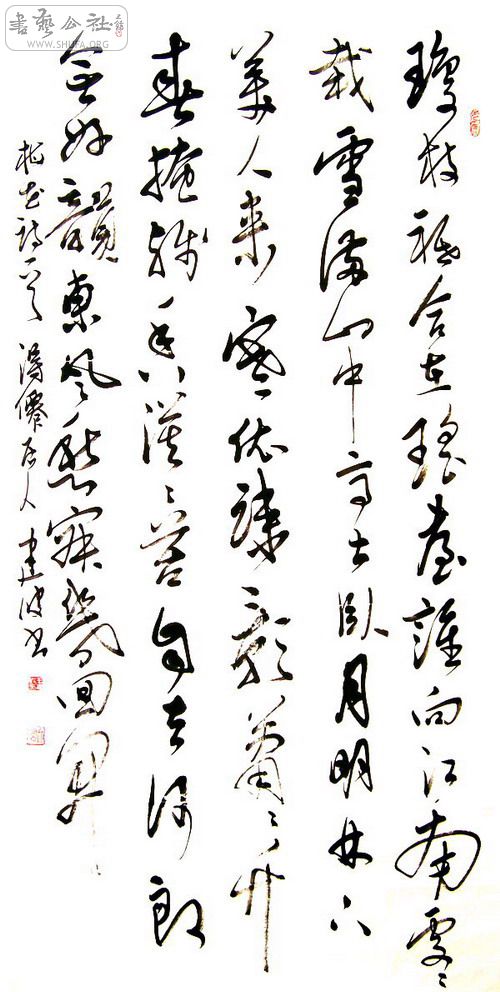 書藝公社
WWW.SHUFA.ORG
瓊枝祗合在瑤臺誰向江南處〻
栽雪滿山中高士臥月明林下
美人來寒依疎影蕭〻竹
春掩殘香漠〻苔自去何郎
無好韻東風愁寂幾回開
梅花詩一首 得僊居人建波書